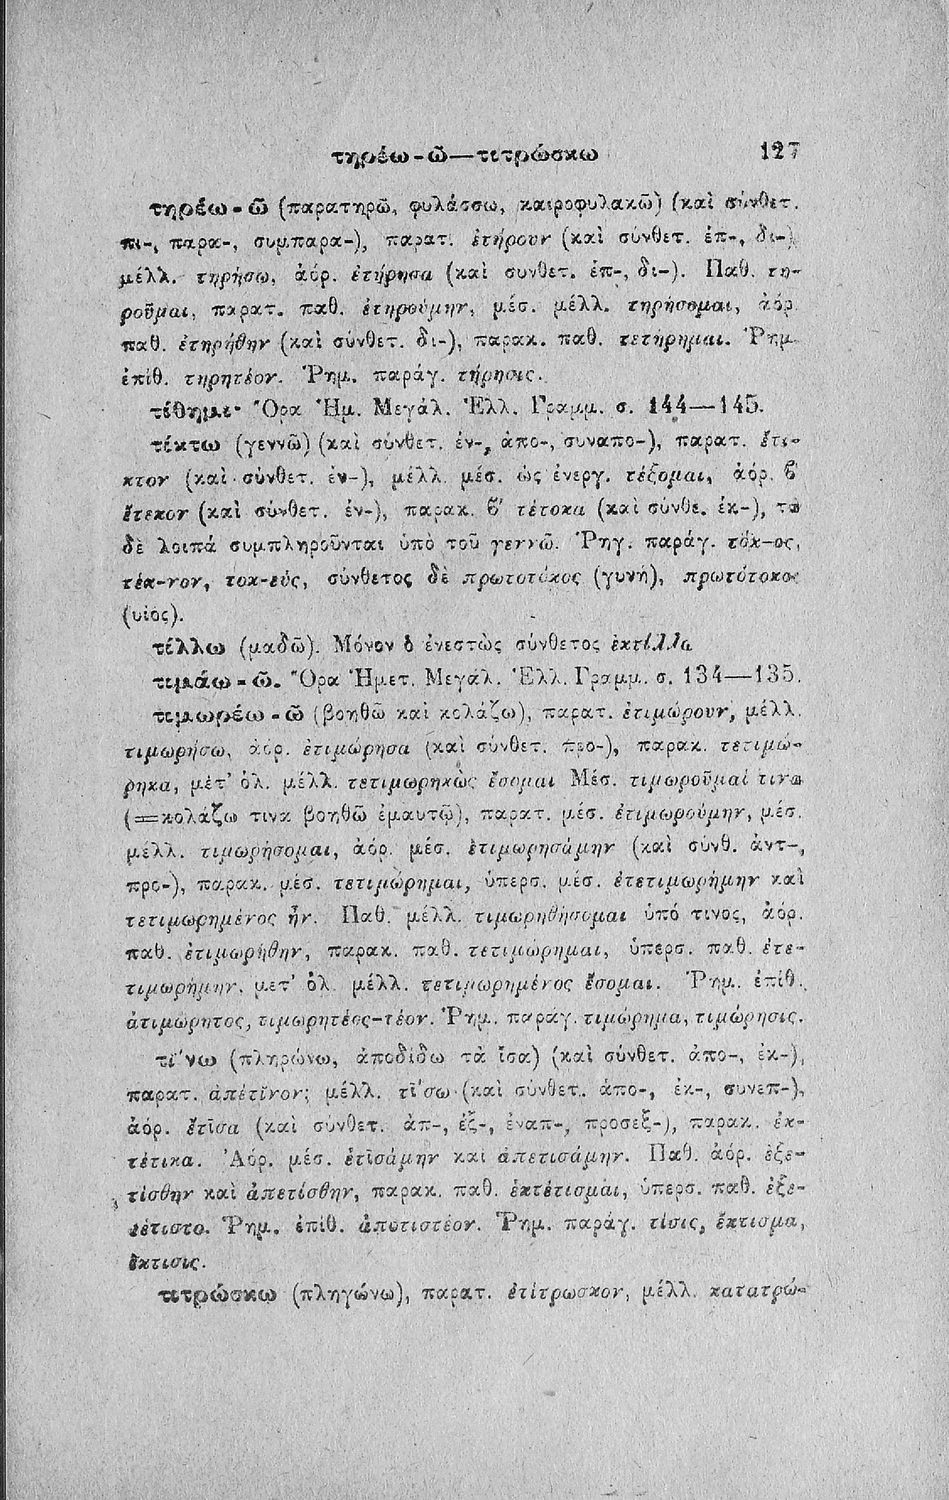 τηρέω-ῶ—τιτρώσκω 127
τηρέω-ῶ (παρατηρῶ, φυλάσσω, καιροφυλακῶ) (καὶ σύνθετ.
πι-, παρα-, συμπαρα-), παρατ. ἐτήρουν (καὶ σύνθετ. ἐπ-, δι-)
μέλλ. τηρήσω, ἀόρ. ἐτήρησα (καὶ συνθετ. ἐπ-, δι-). Παθ. τη-
ροῦμαι, παρατ. παθ. ἐτηρούμην, μέσ. μέλλ. τηρήσομαι, ἀόρ.
παθ. ἐτηρήθην (καὶ σύνθετ. δι-), παρακ. παθ. τετήρημαι. Ῥημ.
ἐπίθ. τηρητέον. Ῥημ. παράγ. τήρησις.
τίθημι· Ὅρα Ἡμ. Μεγάλ. Ἑλλ. Γραμμ. σ. 144—145.
τίκτω (γεννῶ) (καὶ σύνθετ. ἐν-, ἀπο-, συναπο-), παρατ. ἔτι-
κτον (καὶ σύνθετ. ἐν-), μέλλ. μέσ. ὡς ἐνεργ. τέξομαι, ἀόρ. ϐ′
ἔτεκον (καὶ σύνθετ. ἐν-), παρακ. ϐ′ τέτοκα (καὶ σύνθε. ἐκ-), τὰ
δὲ λοιπά συμπληροῦνται ὑπὸ τοῦ γεννῶ. Ῥηγ. παράγ. τόκ-ος,
τέκ-νον, τοκ-εύς, σύνθετος δὲ πρωτοτόκος (γυνή), πρωτότοκος
(υἱός).
τίλλω (μαδῶ). Μόνον ὁ ἐνεστὼς σύνθετος ἐκτίλλω
τιμάω-ῶ. Ὅρα Ἡμετ. Μεγάλ. Ἑλλ. Γραμμ. σ. 134—135.
τιμωρέω-ῶ (βοηθῶ καὶ κολάζω), παρατ. ἐτιμώρουν, μέλλ.
τιμωρήσω, ἀόρ. ἐτιμώρησα (καὶ σύνθετ. προ-), παρακ. τετιμώ-
ρηκα, μετ' ὀλ. μέλλ. τετιμωρηκὼς ἔσομαι Μέσ. τιμωροῦμαί τινα
(=κολάζω τινα βοηθῶ ἐμαυτῷ), παρατ. μέσ. ἐτιμωρούμην, μέσ.
μέλλ. τιμωρήσομαι, ἀόρ. μέσ. ἐτιμωρησάμην (καὶ σύνθ. ἀντ-,
προ-), παρακ. μέσ. τετιμώρημαι, ὑπερσ. μέσ. ἐτετιμωρήμην καὶ
τετιμωρημένος ἦν. Παθ. μέλλ. τιμωρηθήσομαι ὑπό τινος, ἀόρ.
παθ. ἐτιμωρήθην, παρακ. παθ. τετιμώρημαι, ὑπερσ. παθ. ἐτε-
τιμωρήμην, μετ' ὀλ. μέλλ. τετιμωρημένος ἔσομαι. Ῥημ. ἐπίθ.
ἀτιμώρητος, τιμωρητέος-τέον. Ῥημ. παράγ. τιμώρημα, τιμώρησις.
τί'νω (πληρώνω, ἀποδίδω τὰ ἴσα) (καὶ σύνθετ. ἀπο-, ἐκ-),
παρατ. ἀπέτῑνον; μέλλ. τῑ'σω (καὶ σύνθετ. ἀπο-, ἐκ-, συνεπ-),
ἀόρ. ἔτῑσα (καὶ σύνθετ. ἀπ-, ἐξ-, ἐναπ-, προσεξ-), παρακ. ἐκ-
τέτικα. Ἀόρ. μέσ. ἐτῑσάμην καὶ ἀπετισάμην. Παθ. ἀόρ. ἐξε-
τίσθην καὶ ἀπετίσθην, παρακ. παθ. ἐκτέτισμαι, ὑπερσ. παθ. ἐξε-
τέτιστο. Ῥημ. ἐπίθ. ἀποτιστέον. Ῥημ. παράγ. τίσις, ἔκτισμα,
ἔκτισις.
τιτρώσκω (πληγώνω), παρατ. ἐτίτρωσκον, μέλλ. κατατρώ-